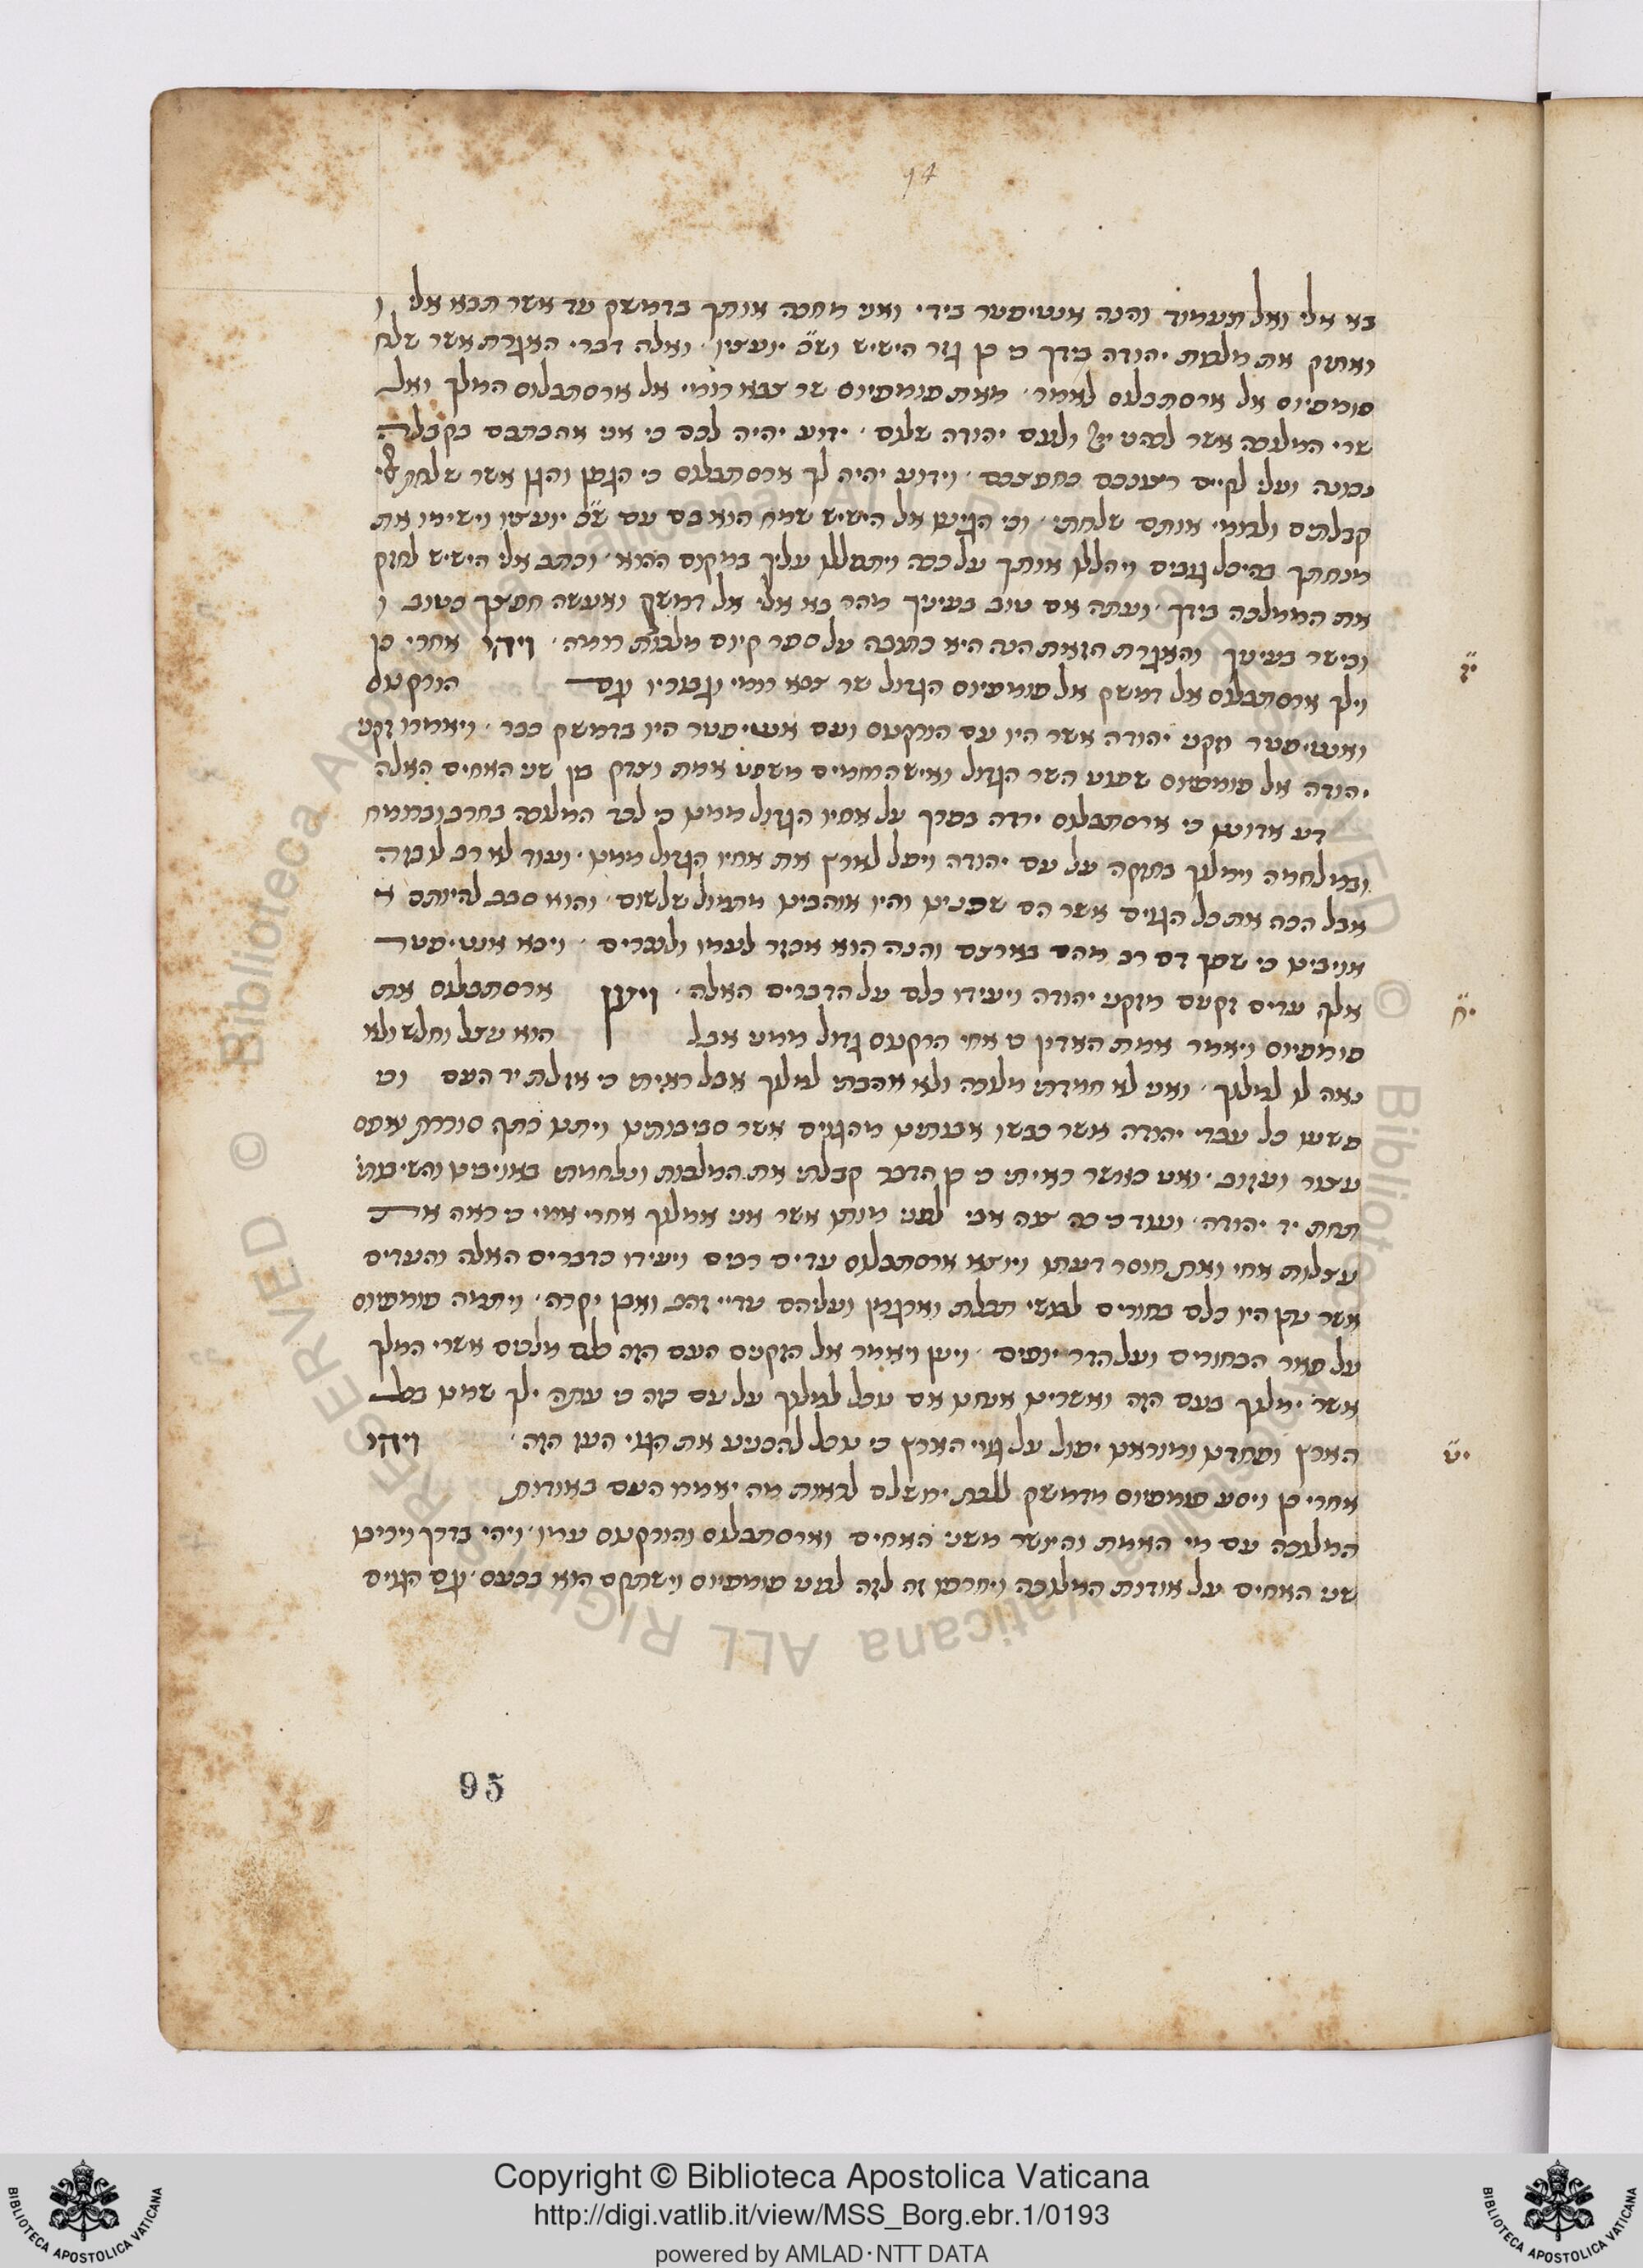 94
בא אלי ואל תעמוד והנה אנטיפטר בידי ואני מחכה אותך בדמשק עד אשר תבא אלי ו
ואחזק את מלכות יהודה בידך כי כן גזר הישיש וש״כ יועציו ואלה דברי האגרת אשר שלח
פומפיוס אל ארסתבלוס לאמר מאת פומפיוס שר צבא רומי אל ארסתבלוס המלך ואל
שרי המלוכה אשר ולעם יהודה שלום ידוע יהיה לכם כי אני אהבתכם בקבלה
נכונה ועלי לקיים רצונכם כחפצכם וידוע יהיה לך ארסתבלוס כי הגפן והגן אשר שלחת לי
קבלתים ולרומי אותם שלחתי וכי הגיעו אל הישיש שמח הוא בם עם ש״כ יועציו וישימו את
מנחתך בהיכל גנבים ויהללו אותך על ככה ויתפללו עליך במקום ההוא וכתב אלי הישיש לחזק
את הממלכה בידך ועתה אם טוב בעיניך מהר בא אלי אל דמשק ואעשה חפצך כטוב ו
וכישר בעיניך והאגרת הזאת הנה היא כתובה על ספר קיום מלכות רומה ויהי אחרי כן
י״ז
וילך ארסתבלוס אל דמשק אל פומפיוס הגדול שר צבא רומי וגבוריו וגם הורקנוס
ואנטיפטר וזקני יהודה אשר היו עם הורקנוס ועם אנטיפטר היו בדמשק כבר ויאמרו זקני
יהודה אל פומפיוס שמע השר הגדול ואיש הרחמים משפט אמת וצדק בין שני האחים האלה
דע אדונינו כי ארסתבלוס ירדה בפרך על אחיו הגדול ממנו כי לכד המלוכה בחרב וברומח
ובמלחמה וימלוך בחזקה על עם יהודה ויפל לארץ את אחיו הגדול ממנו ועוד לא רב לו בזה
אבל הכה את כל הגוים אשר הם שכנינו והיו אוהבינו מתמול שלשום והוא סבב להיותם א
אויבינו כי שפך דם רב מהם בארצם והנה הוא אכזר לעמו ולנכרים ויבא אנטיפטר
אלף עדים זקנים מזקני יהודה ויעידו כלם על הדברים האלה ויען ארסתבלוס את
י״ח
פומפיוס ויאמר אמת האדון כי אחי הורקנוס גדול ממני אבל הוא עצל וחלש ולא
נאה לו למלוך ואני לא חמדתי מלוכה ולא אהבתי למלוך אבל ראיתי כי אזלת יד העם וכי
פשעו כל עבדי יהודה אשר כבשו אבותינו מהגוים אשר סביבותינו ויתנו כתף סוררת אפס
עצור ועזוב ואני כאשר ראיתי כי כן הדבר קבלתי את המלכות ונלחמתי באויבינו והשיבותי
תחת יד יהודה ועוד כי כה צוה אבי לפני מותו אשר אני אמלוך אחרי אמי כי ראה את
עצלות אחי ואת חוסר דעתו ויוצא ארסתבלוס עדים רבים ויעידו כדברים האלה והעדים
אשר נתן היו כלם בחורים לבושי תכלת וארגמן ועליהם עדיי זהב ואבן יקרה ויתמה פומפיוס
על פאר הבחורים ועל הדר יופים ויען ויאמר אל הזקנים העם הזה כלם מלכים אשרי המלך
אשר ימלוך בעם הזה ואשרינו אנחנו אם נוכל למלוך על עם כזה כי עתה ילך שמינו בכל
הארץ ופחדינו ומוראינו יפול על גויי הארץ כי נוכל להכניע את הגוי העז הזה ויהי
י״ט
אחרי כן ויסע פומפיוס מדמשק ללכת ירושלם לראות מה יאמרו העם באודות
המלוכה עם מי האמת והיושר משני האחים וארסתבלוס והורקנוס עמו ויהי בדרך ויריבו
שני האחים על אודות המלוכה ויחרפו זה לזה לפני פומפיוס וישתקם הוא בכעס וגם הגוים
95
Copyright © Biblioteca Apostolica Vaticana
http://digi.vatlib.it/view/MSS_Borg.ebr.1/0193
powered by AMLAD·NTT DATA
BIBLIOTECA APOSTOLICA VATICANA
BIBLIOTECA APOSTOLICA VATICANA
© Biblioteca Apostolica Vaticana ALL RIGHTS RESERVED
© Biblioteca Apostolica Vaticana ALL RIGHTS RESERVED